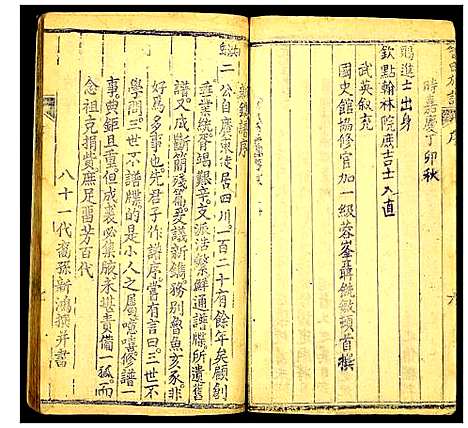 時嘉慶丁卯秋
賜進士出身
欽點翰林院庶吉士入直
武英叙充
國史館協修官加一級蓉峯聶銑敏頓首撰
新鐫譜序
二公自廣東徙居四川一百二十有餘年矣顧創
垂業統胥竭艱辛文派浩繁鮮通譜牒所遺舊
譜又成斷簡殘篇爰議新鐫務别魯魚亥豕非
好為多事也先君子作譜序嘗有言曰三世不
學問三世不譜牒的是小人之屬噫嘻修譜一
事典鉅且重但成裘必集腋永堪責備一狐而
念祖克捐貲庶足留芳百代
八十一代裔孫新鴻撰并書